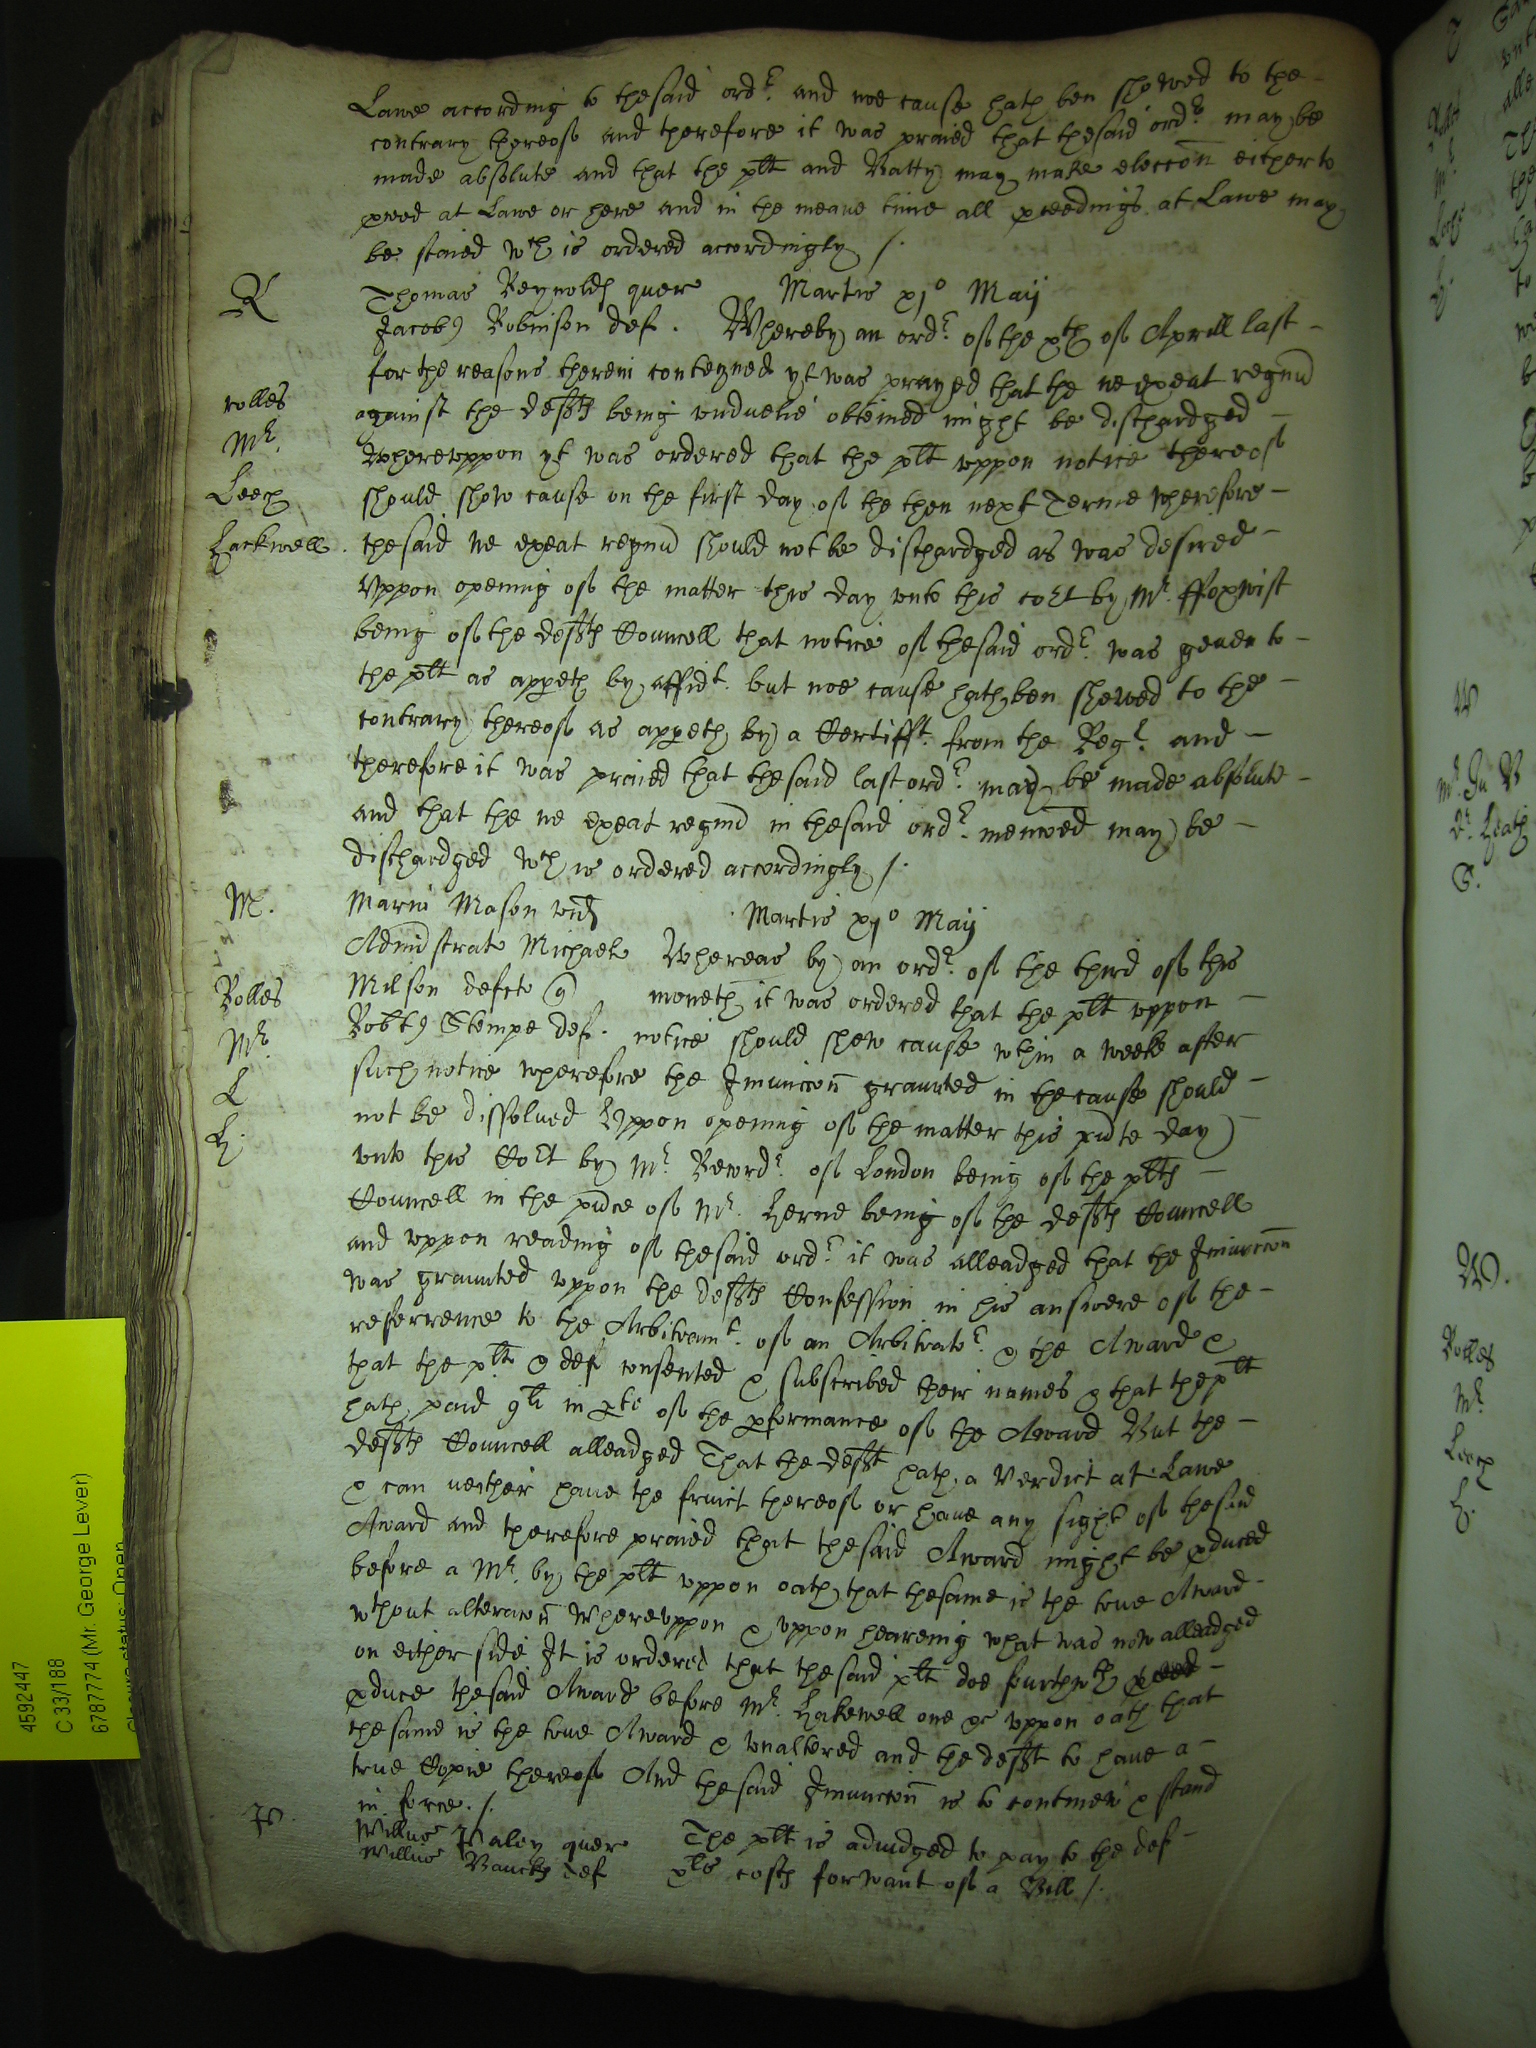 Lawe according to thesaid ordr. and noe cause hath ben shewed to the
contrary thereof and therefore it was praied that thesaid ordr. may be
made absolute and that the plt and Batty may make eleccon either to
pceed at Lawe or here and in the meane time all pceedings at Lawe may
be staied wch is ordered accordingly /.
R
Thomas Reynolds quer Martis xjo Maij
Jacob9 Robinson def. Whereby an ordr. of the xth of Aprill last
for the reasons therein conteyned yt was prayed that the ne exeat regnu
rolles
against the defts being unduelie obteined might be dischardged
Mr.
Whereuppon yt was ordered that the plt uppon notice thereof
Leech
should shew cause on the first day of the then next Terme wherefore
Hackwell.
thesaid ne exeat regnu should not be dischardged as was desired
Uppon opening of the matter this day unto this cort by Mr. ffoxwist
being of the defts Councell that notice of thesaid ordr. was geven to
the plt as appeth by affidt. but noe cause hath ben shewed to the
contrary thereof as appeth by a Certifft. from the Regr. and
therefore it was praied that thesaid last ordr. may be made absolute
and that the ne exeat regnu in thesaid ordr. mencoed may be
dischardged wch is ordered accordingly /.
M.
Marie Mason vid
Martis xjo Maij
Administrat Michael Whereas by an ordr. of the third of this
Milson defct
moneth it was ordered that the plt uppon
Rolles
Robt9 Stempe def. notice should shew cause wthin a weeke after
Mr.
such notice wherefore the Iniuncon graunted in the cause should
L
not be dissolved Uppon opening of the matter this pnte day
H.
unto this Cort by Mr. Recordr. of London being of the plts
Councell in the pnce of Mr. Herne being of the defts Councell
and uppon reading of thesaid ordr. it was alleadged that the Iniuncon
was graunted uppon the defts Confession in his answere of the
referrence to the Arbitramt. of an Arbitrator. & the Award &
that the plt. & def consented & subscribed their names & that the plt
hath paid 9li in pte of the pformance of the Award But the
defts Councell alleadged That the deft hath a Verdict at Lawe
& can neither have the fruict thereof or have any sight of thesaid
Award and therefore praied that thesaid Award might be pduced
before a Mr. by the plt uppon oath that thesame is the true Award
wthout alteracon Whereuppon & uppon heareing what was now alleadged
on either side It is ordered that thesaid plt doe fourthwth
pduce thesaid Award before Mr. Hakewell one &c uppon oath that
thesame is the true Award & unaltered and the deft to have a
true Copie thereof And thesaid Iniuncon is to contineu & stand
in force. /.
Willus Paley quer The plt is adiudged to pay to the def
Willus def xls costs for want of a Bill /.
4592447
C 33/188
6787774 (Mr. George Lever)
Closure status: Open